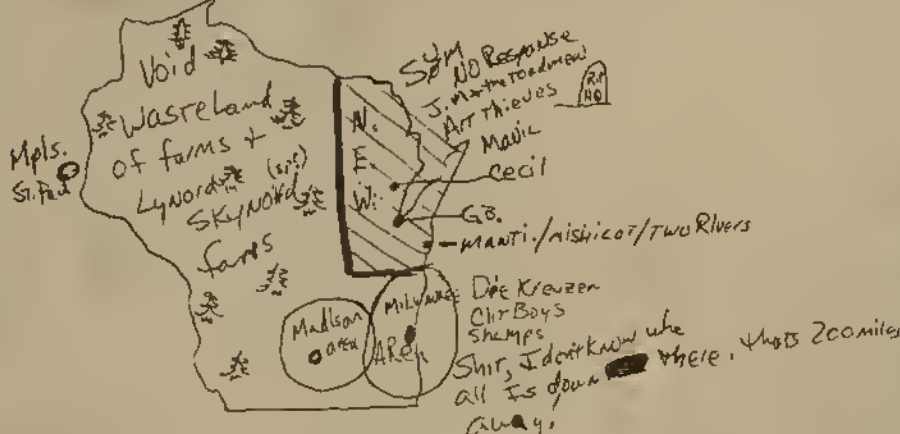 Void
Wasteland
of farms +
Lynord (sic)
Skynord
farms
Mpls.
St. Paul
N.
E.
W.
SYM
NO Response
J. Mx-the Toadmen
Art Thieves
R.I.P
HQ
Mavic
Cecil
G.B.
Manti./Mishicot/Two Rivers
Madison
area
Milwaukee
Area
Die Kreuzen
Clit Boys
Shemps
Shit, I don't know who
all is down there. thats 200 miles
away.